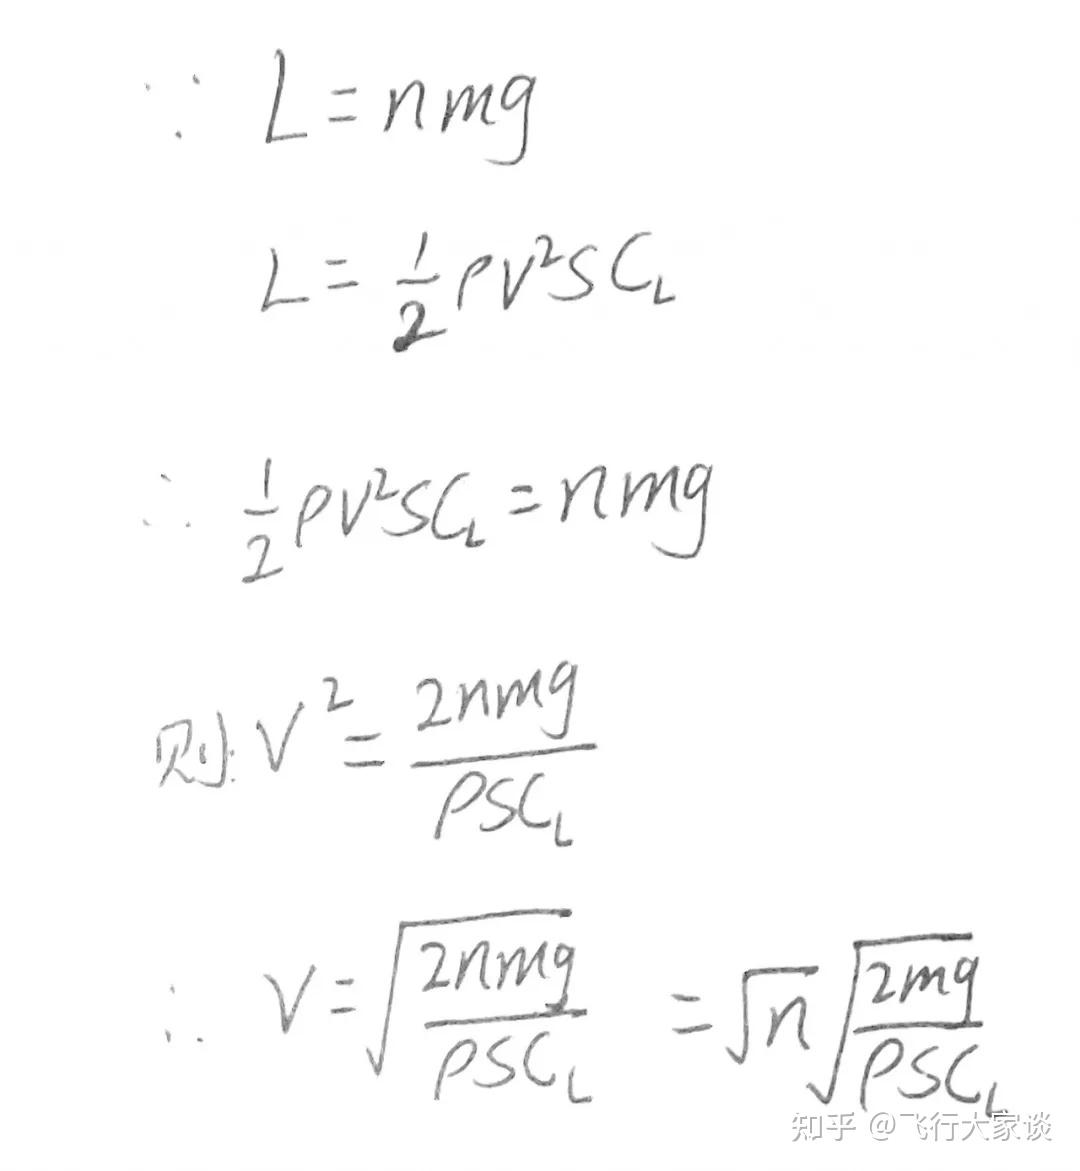 ∵ L = nmg
L = 1/2 ρV²SC_L
∴ 1/2 ρV²SC_L = nmg
则: V² = 2nmg/ρSC_L
∴ V = √(2nmg/ρSC_L) = √n √(2mg/ρSC_L)
知乎 @飞行大家谈